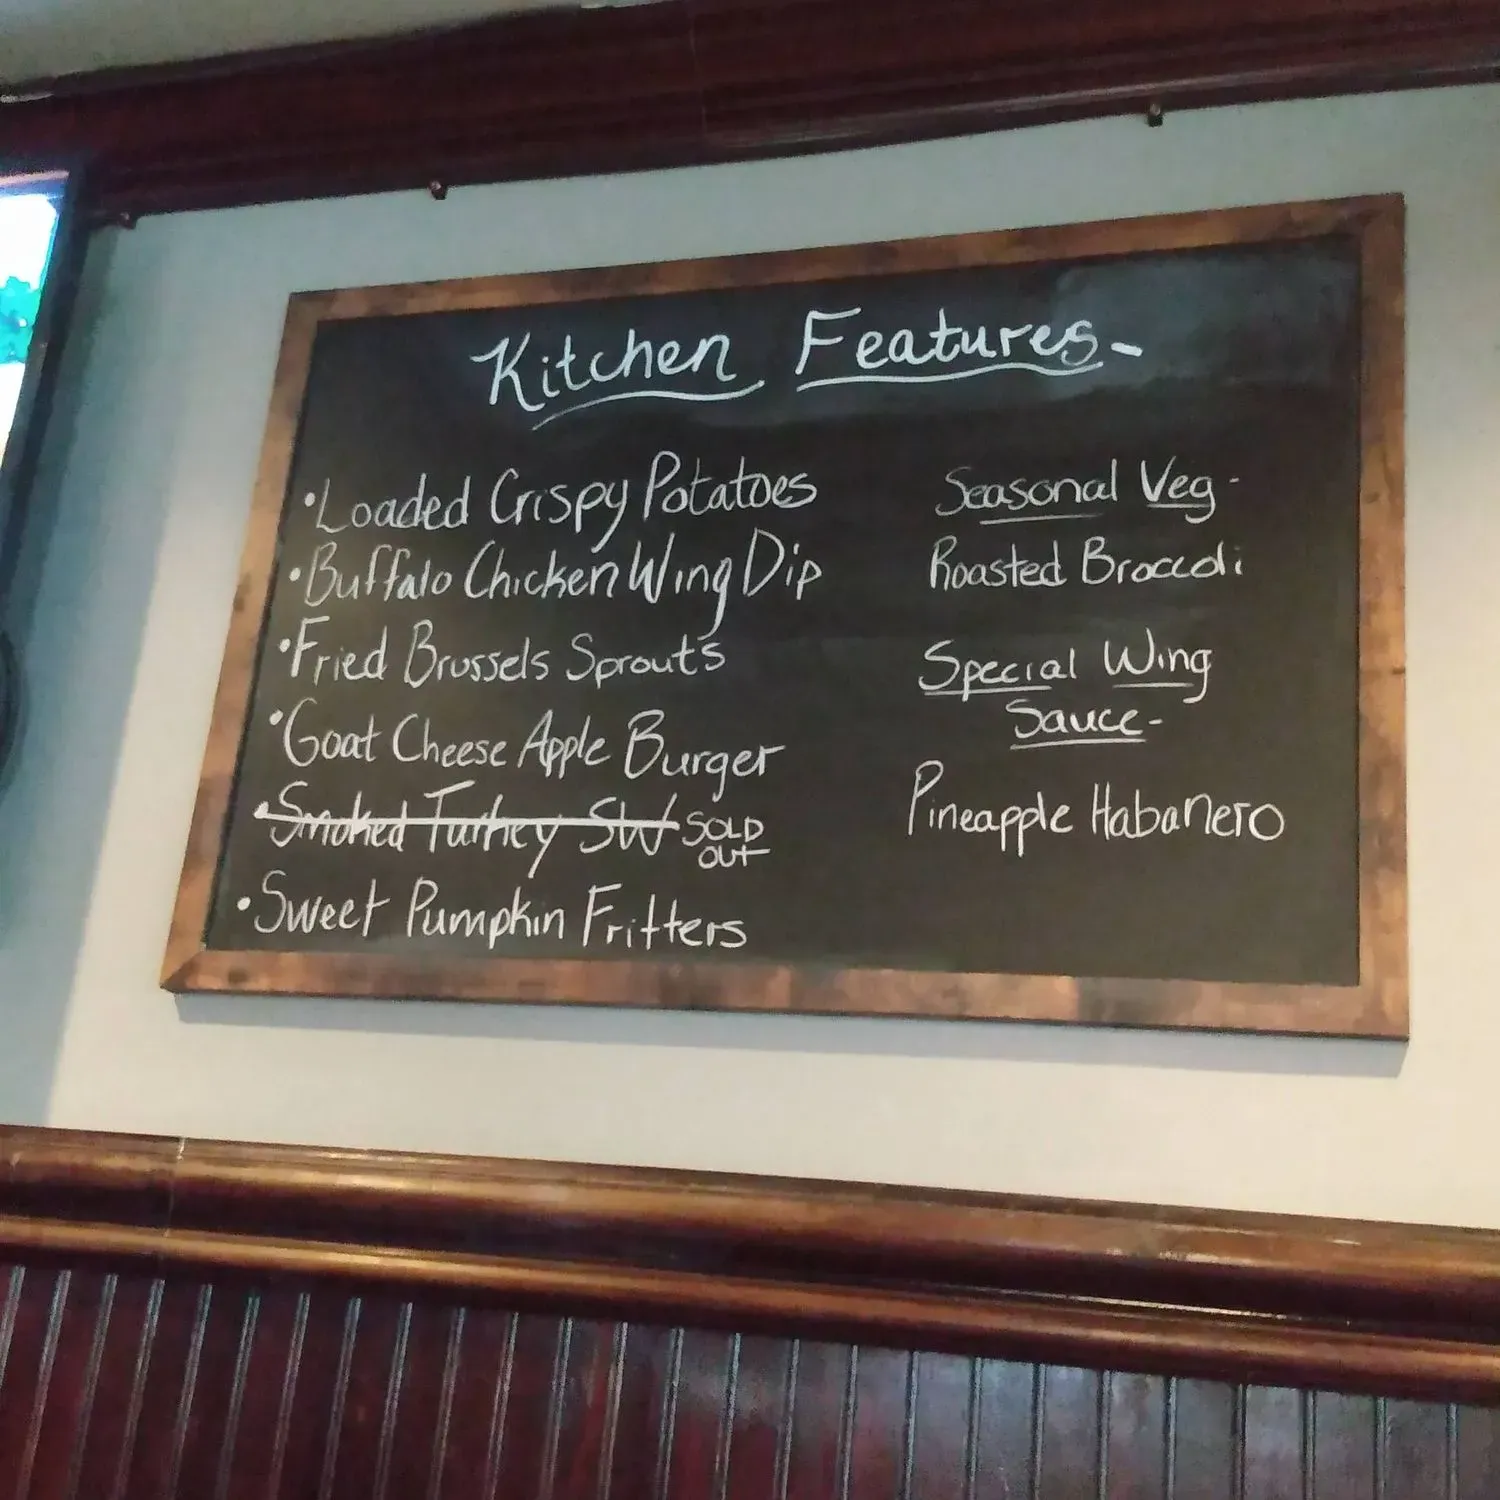 Kitchen Features-
•Loaded Crispy Potatoes
•Buffalo Chicken Wing Dip
•Fried Brussels Sprouts
•Goat Cheese Apple Burger
•Smoked Turkey SW SOLD
OUT
•Sweet Pumpkin Fritters
Seasonal Veg-
Roasted Broccoli
Special Wing
Sauce-
Pineapple Habanero